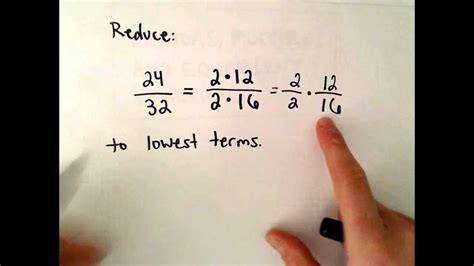 Reduce:
24/32 = 2·12/2·16 = 2/2 · 12/16
to lowest terms.